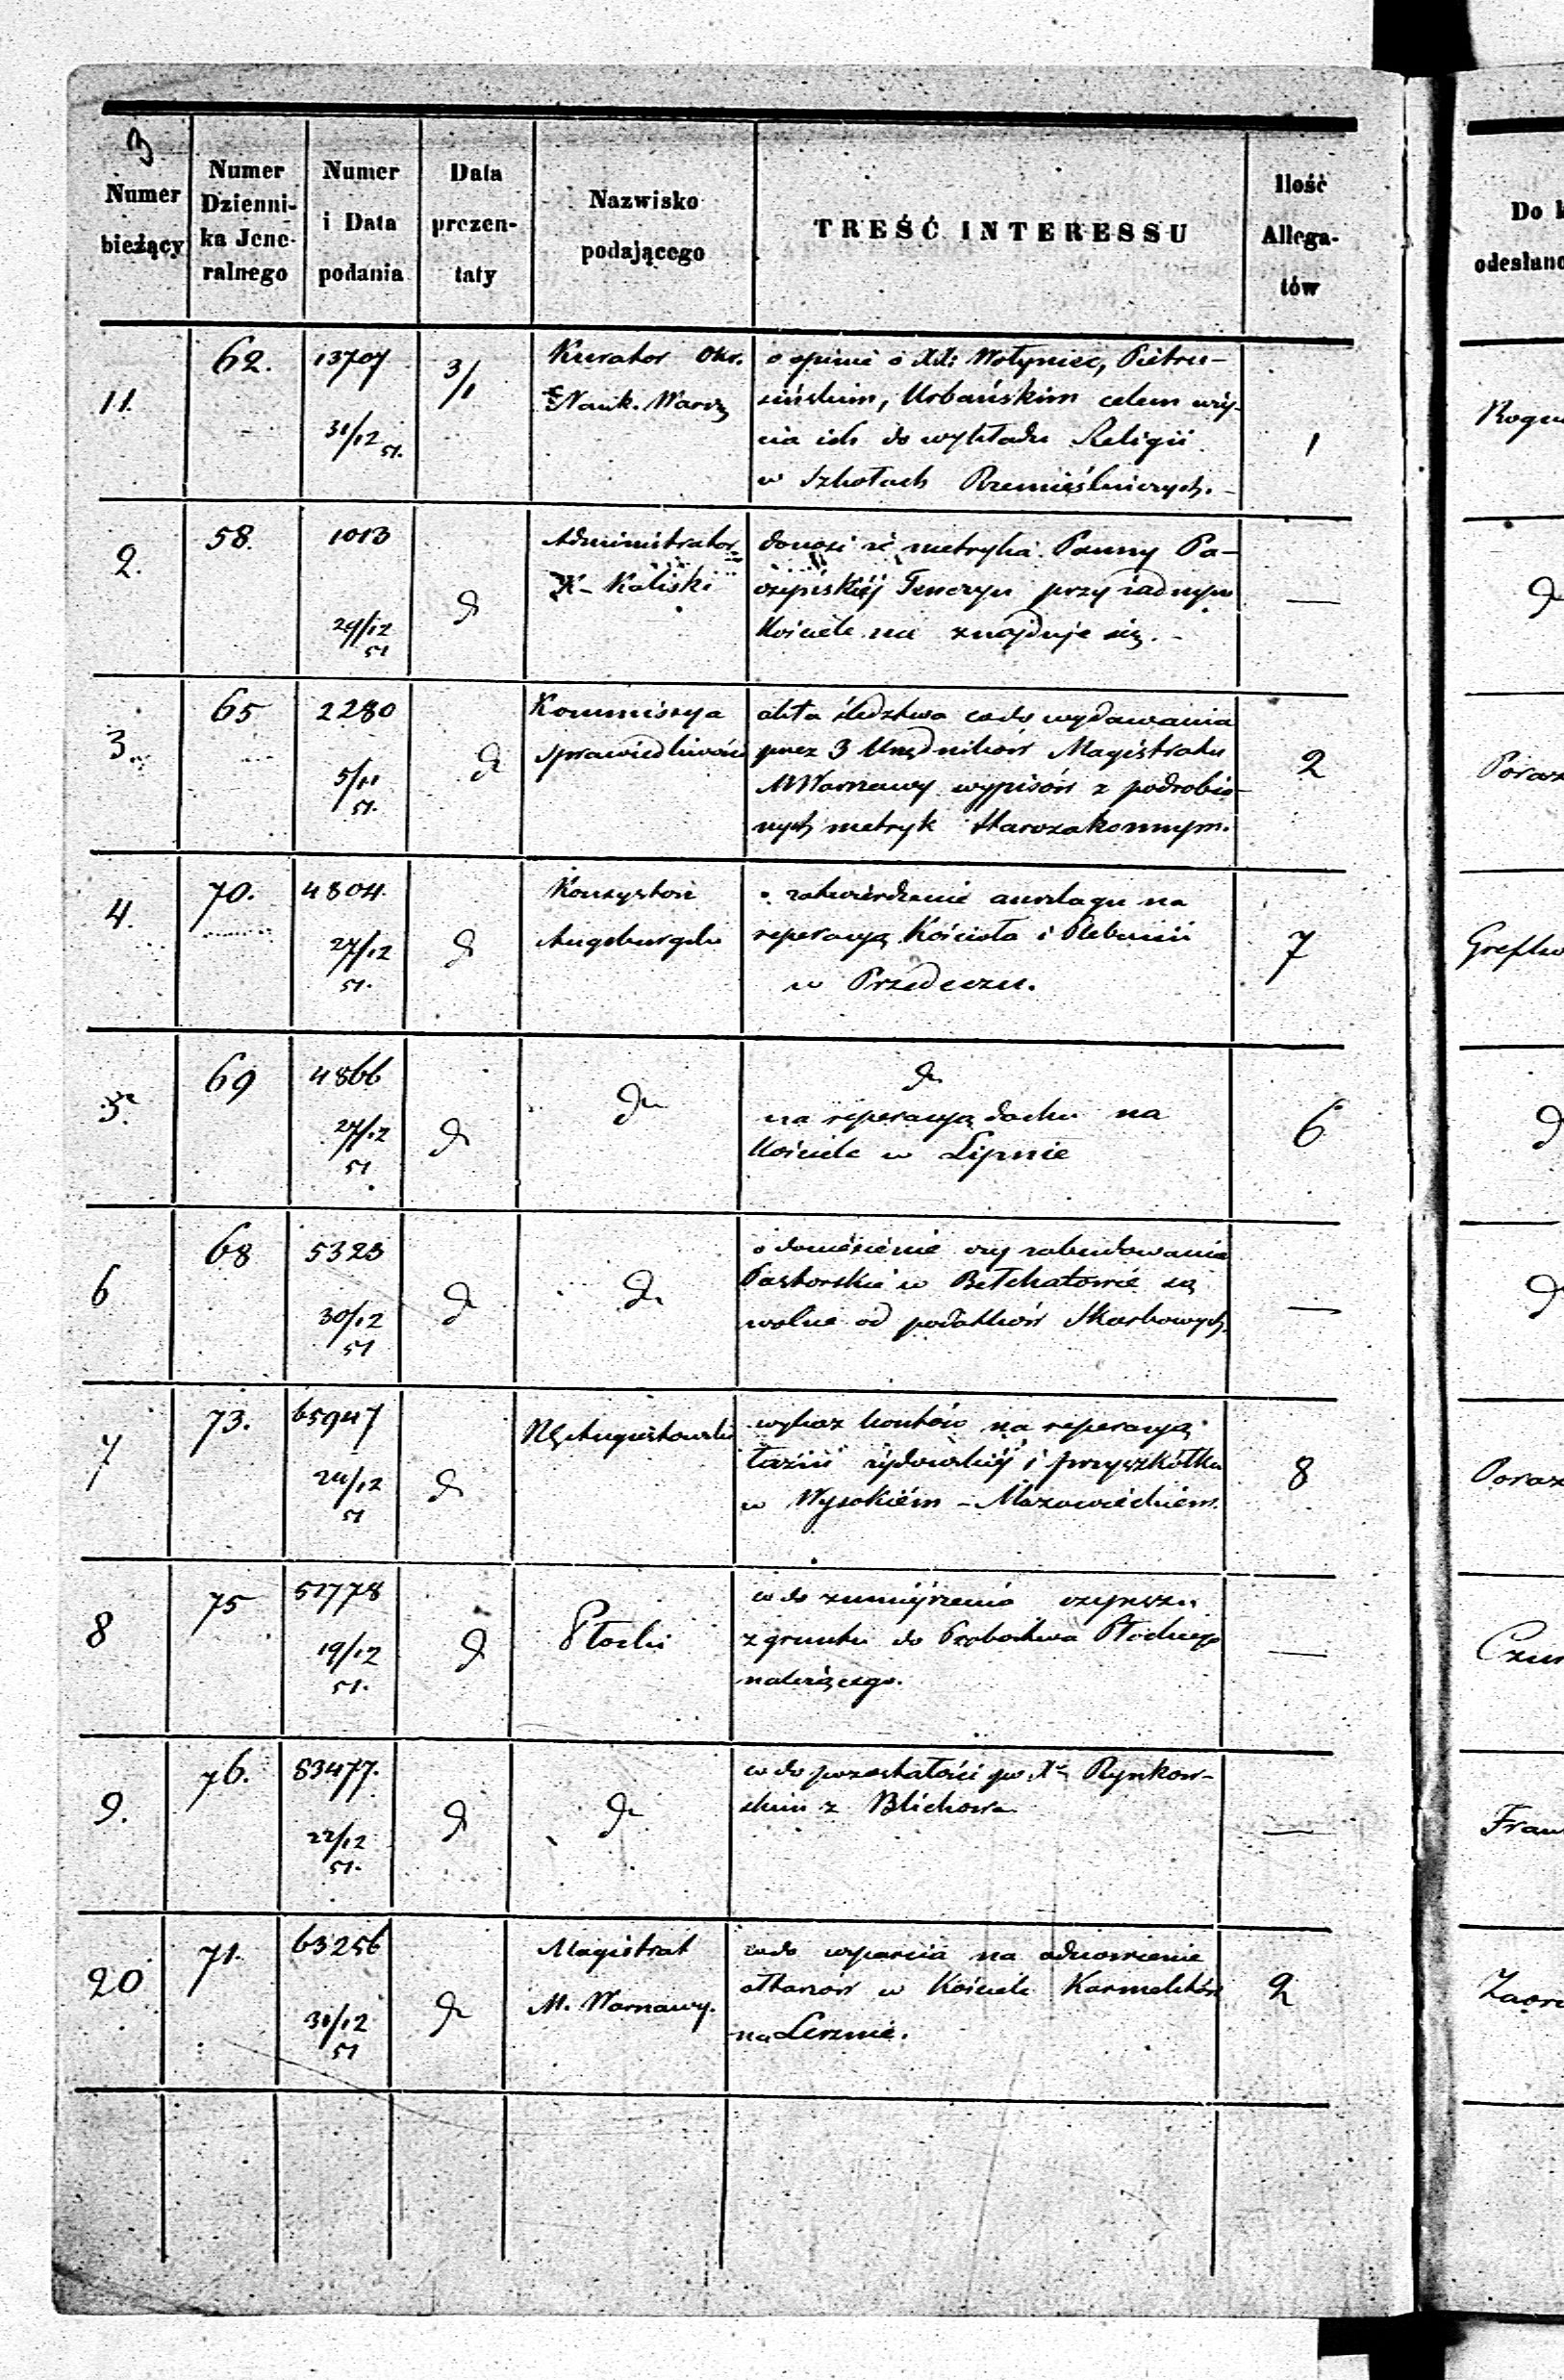 3
Numer bieżący
Numer Dzienni-
ka Jene-
ralnego
Numer i Data podania
Data prezen-
taty
Nazwisko podającego
TREŚĆ INTERESSU
Ilość Allega-
tów
Do
odesłano
11.
62.
13707
31/12 51.
3/1
Kurator Okr.
Nauk. Warsz
o opinię o XX: Wołyniec, Pietru-
sińskim, Urbańskim celem uży-
cia ich do wykładu Religii
w Szkołach Rzemieślniczych.-
1
2.
58.
1013
29/12
51
d
Administrator
K- Kaliski
donosi że metryka Panny
przy żadnym
Kościele nie znajduje się.-
—
d
3.
65
2280
5/11
51.
d
Kommissya
Sprawiedliwości
akta śledztwa co do wydawania
przez 3 Urzędników Magistratu
M Warszawy wypisów z podrobio-
nych metryk starozakonnym.
2
4.
70.
4804
27/12
51.
d
Konsystorz
Augsburgski
o zatwierdzenie anszlagu na
reperacyą Kościoła i Plebanii
w Przedeczu.
7
5.
69
4866
27/12
51
d
do
do
na reperacyą dachu na
Kościele w Lipnie
6
d
6
68
5323
30/12
51
d
do
o doniesienie czy zabudowania
Pastorskie w Bełchatowie są
wolne od podatków Skarbowych.
—
d
7
73.
65947
24/12
51
d
Augustowski
wykaz kosztów na reperacyą
łaźni żydowskiéj i przyszkółka
w Wysokiém - Mazowieckiem.
8
8
75
51778
19/12
51.
d
Płocki
co do zmniejszenia czynszu
z gruntu do Probostwa Płockiego
należącego.
—
9.
76.
83477.
22/12
51.
d
do
co do pozostałości po Xu Rynkow-
skim z Blichowa
—
20
71.
63256
31/12
51
d
Magistrat
M. Warszawy.
co do wsparcia na odnowienie
ołtarzów w Kościele Karmelitów
na Lesznie.
2